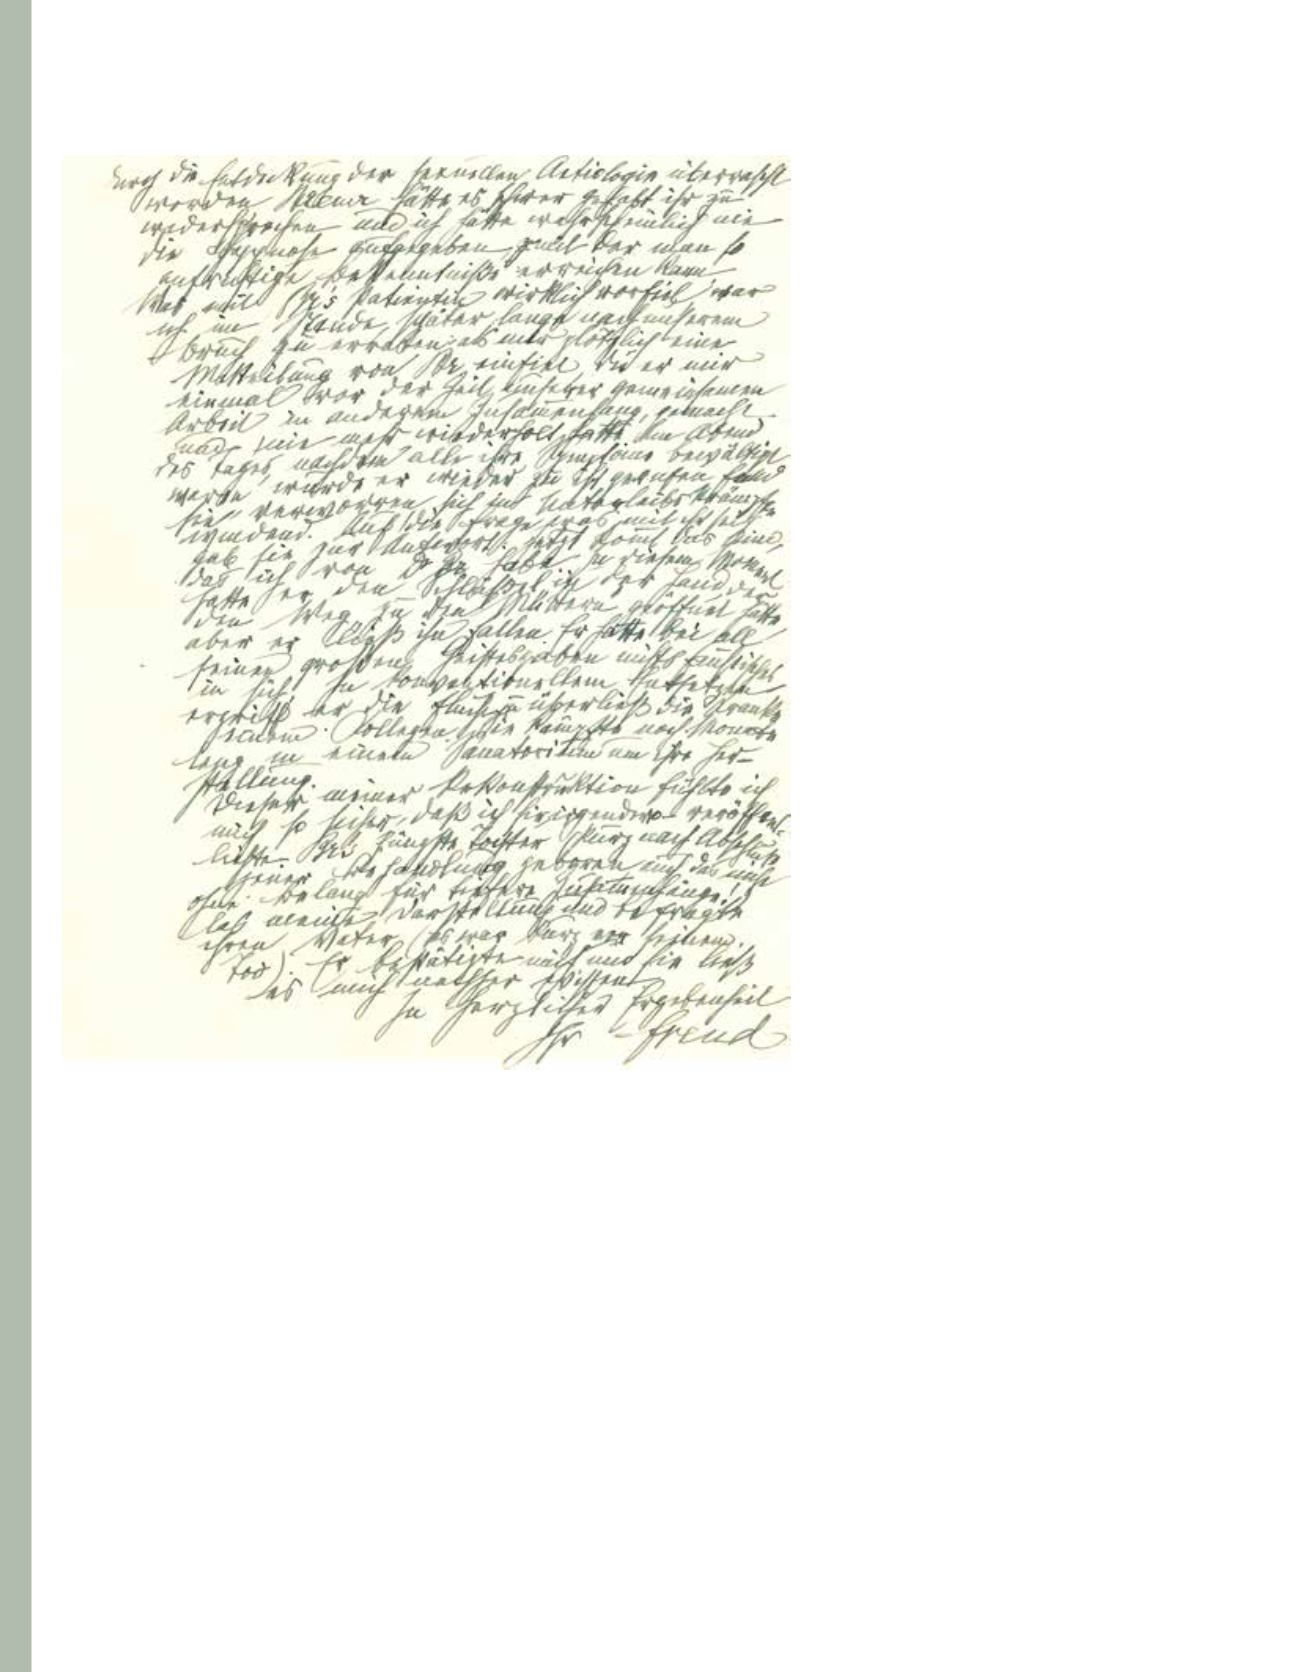 durch die Entdeckung der sexuellen Aetiologie überrascht
worden Breuer hätte es schwer gehabt ihr zu
widersprechen und ich hätte wahrscheinlich nie
die Hypnose aufgegeben, mit der man so
aufrichtige Bekenntniße erreichen kann
Was mit Br's Patientin wirklich vorfiel, war
ich im Stande, später lange nach unserem
Bruch zu erraten, als mir plötzlich eine
Mitteilung von Br. einfiel, die er mir
einmal vor der Zeit unserer gemeinsamen
Arbeit in anderem Zusammenhang gemacht
und nie mehr wiederholt hatte Am Abend
des Tages, nachdem alle ihre Symptome bewältigt
waren, wurde er wieder zu ihr gerufen, fand
sie verworren, sich in Unterleibskrämpfen
windend. Auf die Frage, was mit ihr sei
gab sie zur Antwort: Jetzt kommt das Kind,
das ich von Dr Br. habe In diesem Moment
hatte er den Schlüßel in der Hand, der
den Weg zu den Müttern geöffnet hätte
aber er ließ ihn fallen. Er hatte bei all
seinen großen Geistesgaben nichts Faustisches
in sich. In konventionellem Entsetzen
ergriff er die Flucht u überließ die Kranke
einem Collegen. Sie kämpfte noch Monate
lang in einem Sanatorium um ihre Her-
stellung.
Dieser meiner Rekonstruktion fühlte ich
mich so sicher, daß ich sie irgendwo veröffent-
lichte Br's jüngste Tochter (kurz nach Abschluß
jener Behandlung geboren, auch das nicht
ohne Belang für tiefere Zusammenhänge!)
las meine Darstellung und befragte
ihren Vater (es war kurz vor seinem
Tod). Er bestätigte mich und sie ließ
es mich nachher wissen
In herzlicher Ergebenheit
Ihr Freud